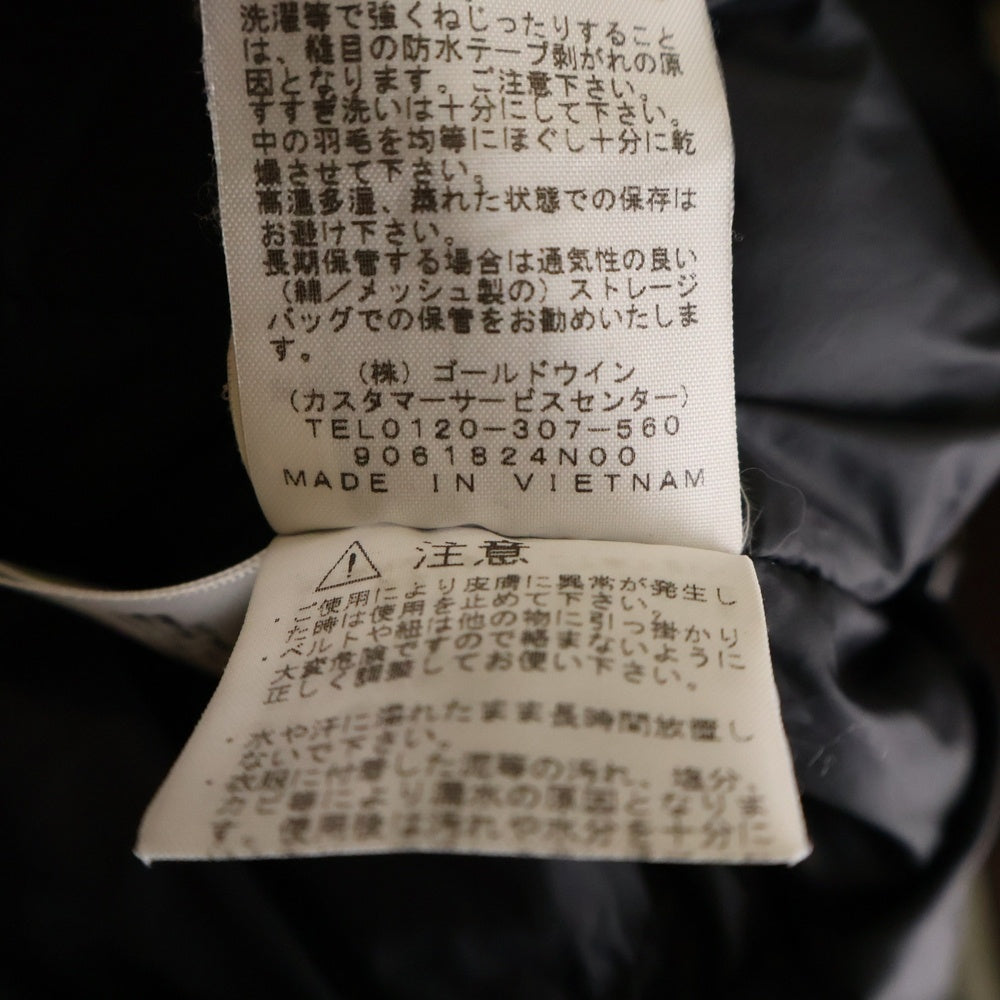 洗濯等で強くねじったりすること
は、縫目の防水テープ剥がれの原
因となります。ご注意下さい。
すすぎ洗いは十分にして下さい。
中の羽毛を均等にほぐし十分に乾
燥させて下さい。
高温多湿、蒸れた状態での保存は
お避け下さい。
長期保管する場合は通気性の良い
(綿/メッシュ製の)ストレージ
バッグでの保管をお勧めいたしま
す。
(株)ゴールドウイン
(カスタマーサービスセンター)
TEL0120-307-560
9061824N00
MADE IN VIETNAM
注意
・ご使用により皮膚に異常が発生し
た時は使用を止めて下さい。
・ベルトや紐は他の物に引っ掛かり
大変危険ですので絡まないように
正しく調整してお使い下さい。
・水や汗に濡れたまま長時間放置し
ないで下さい。
に付着した泥等の汚れ、塩分、
等により漏水の原因となりま
す。使用後は汚れや水分を十分に